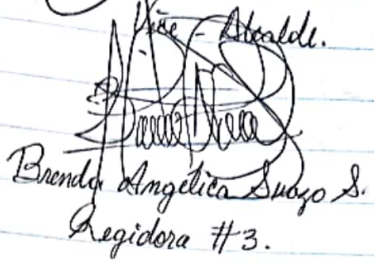 Vice - Alcalde.
Brenda Angelica Suazo S.
Regidora #3.